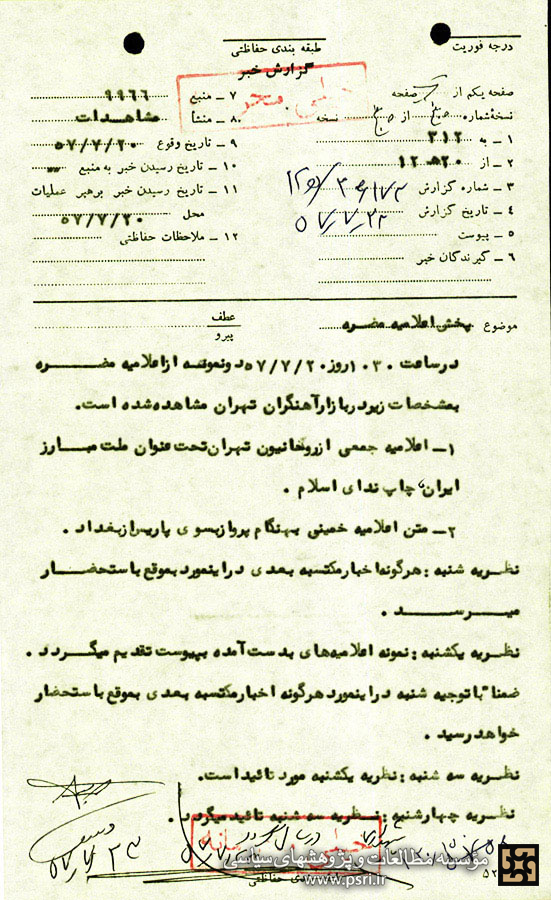 درجه فوریت
طبقه بندی حفاظتی
گزارش خبر
صفحه یکم از یک صفحه
نسخه شماره از نسخه
۱ ـ به ۳۱۲
۲ ـ از ۲۰ ه‍ ۱۲
۳ ـ شماره گزارش
۴ ـ تاریخ گزارش ۵۷/۷/۲۳
۵ ـ پیوست
۶ ـ گیرندگان خبر
۷ ـ منبع ۹۹۶۶
۸ ـ منشأ مشاهدات
۹ ـ تاریخ وقوع ۵۷/۷/۲۰
۱۰ ـ تاریخ رسیدن خبر به منبع
۱۱ ـ تاریخ رسیدن خبر برهبر عملیات
محل ۵۷/۷/۲۰
۱۲ ـ ملاحظات حفاظتی
موضوع پخش اعلامیه مضره
عطف
پیرو
درساعت ۱۰۳۰ روز ۵۷/۷/۲۰ دونمونه ازاعلامیه مضره
بمشخصات زیردربازارآهنگران تهران مشاهده شده است.
۱ـ اعلامیه جمعی ازروحانیون تهران تحت عنوان ملت مبارز
ایران، چاپ ندای اسلام .
۲ـ متن اعلامیه خمینی بهنگام پروازبسوی پاریس ازبغداد .
نظریه شنبه : هرگونه اخبارمکتسبه بعدی دراینمورد بموقع باستحضار
میرسد .
نظریه یکشنبه : نمونه اعلامیه‌های بدست آمده بپیوست تقدیم میگردد .
ضمناً باتوجیه شنبه دراینمورد هرگونه اخبارمکتسبه بعدی بموقع باستحضار
خواهد رسید .
نظریه سه شنبه : نظریه یکشنبه مورد تائید است.
نظریه چهارشنبه : نظریه سه شنبه تائید میگردد .
مؤسسه مطالعات و پژوهشهای سیاسی
www.psri.ir